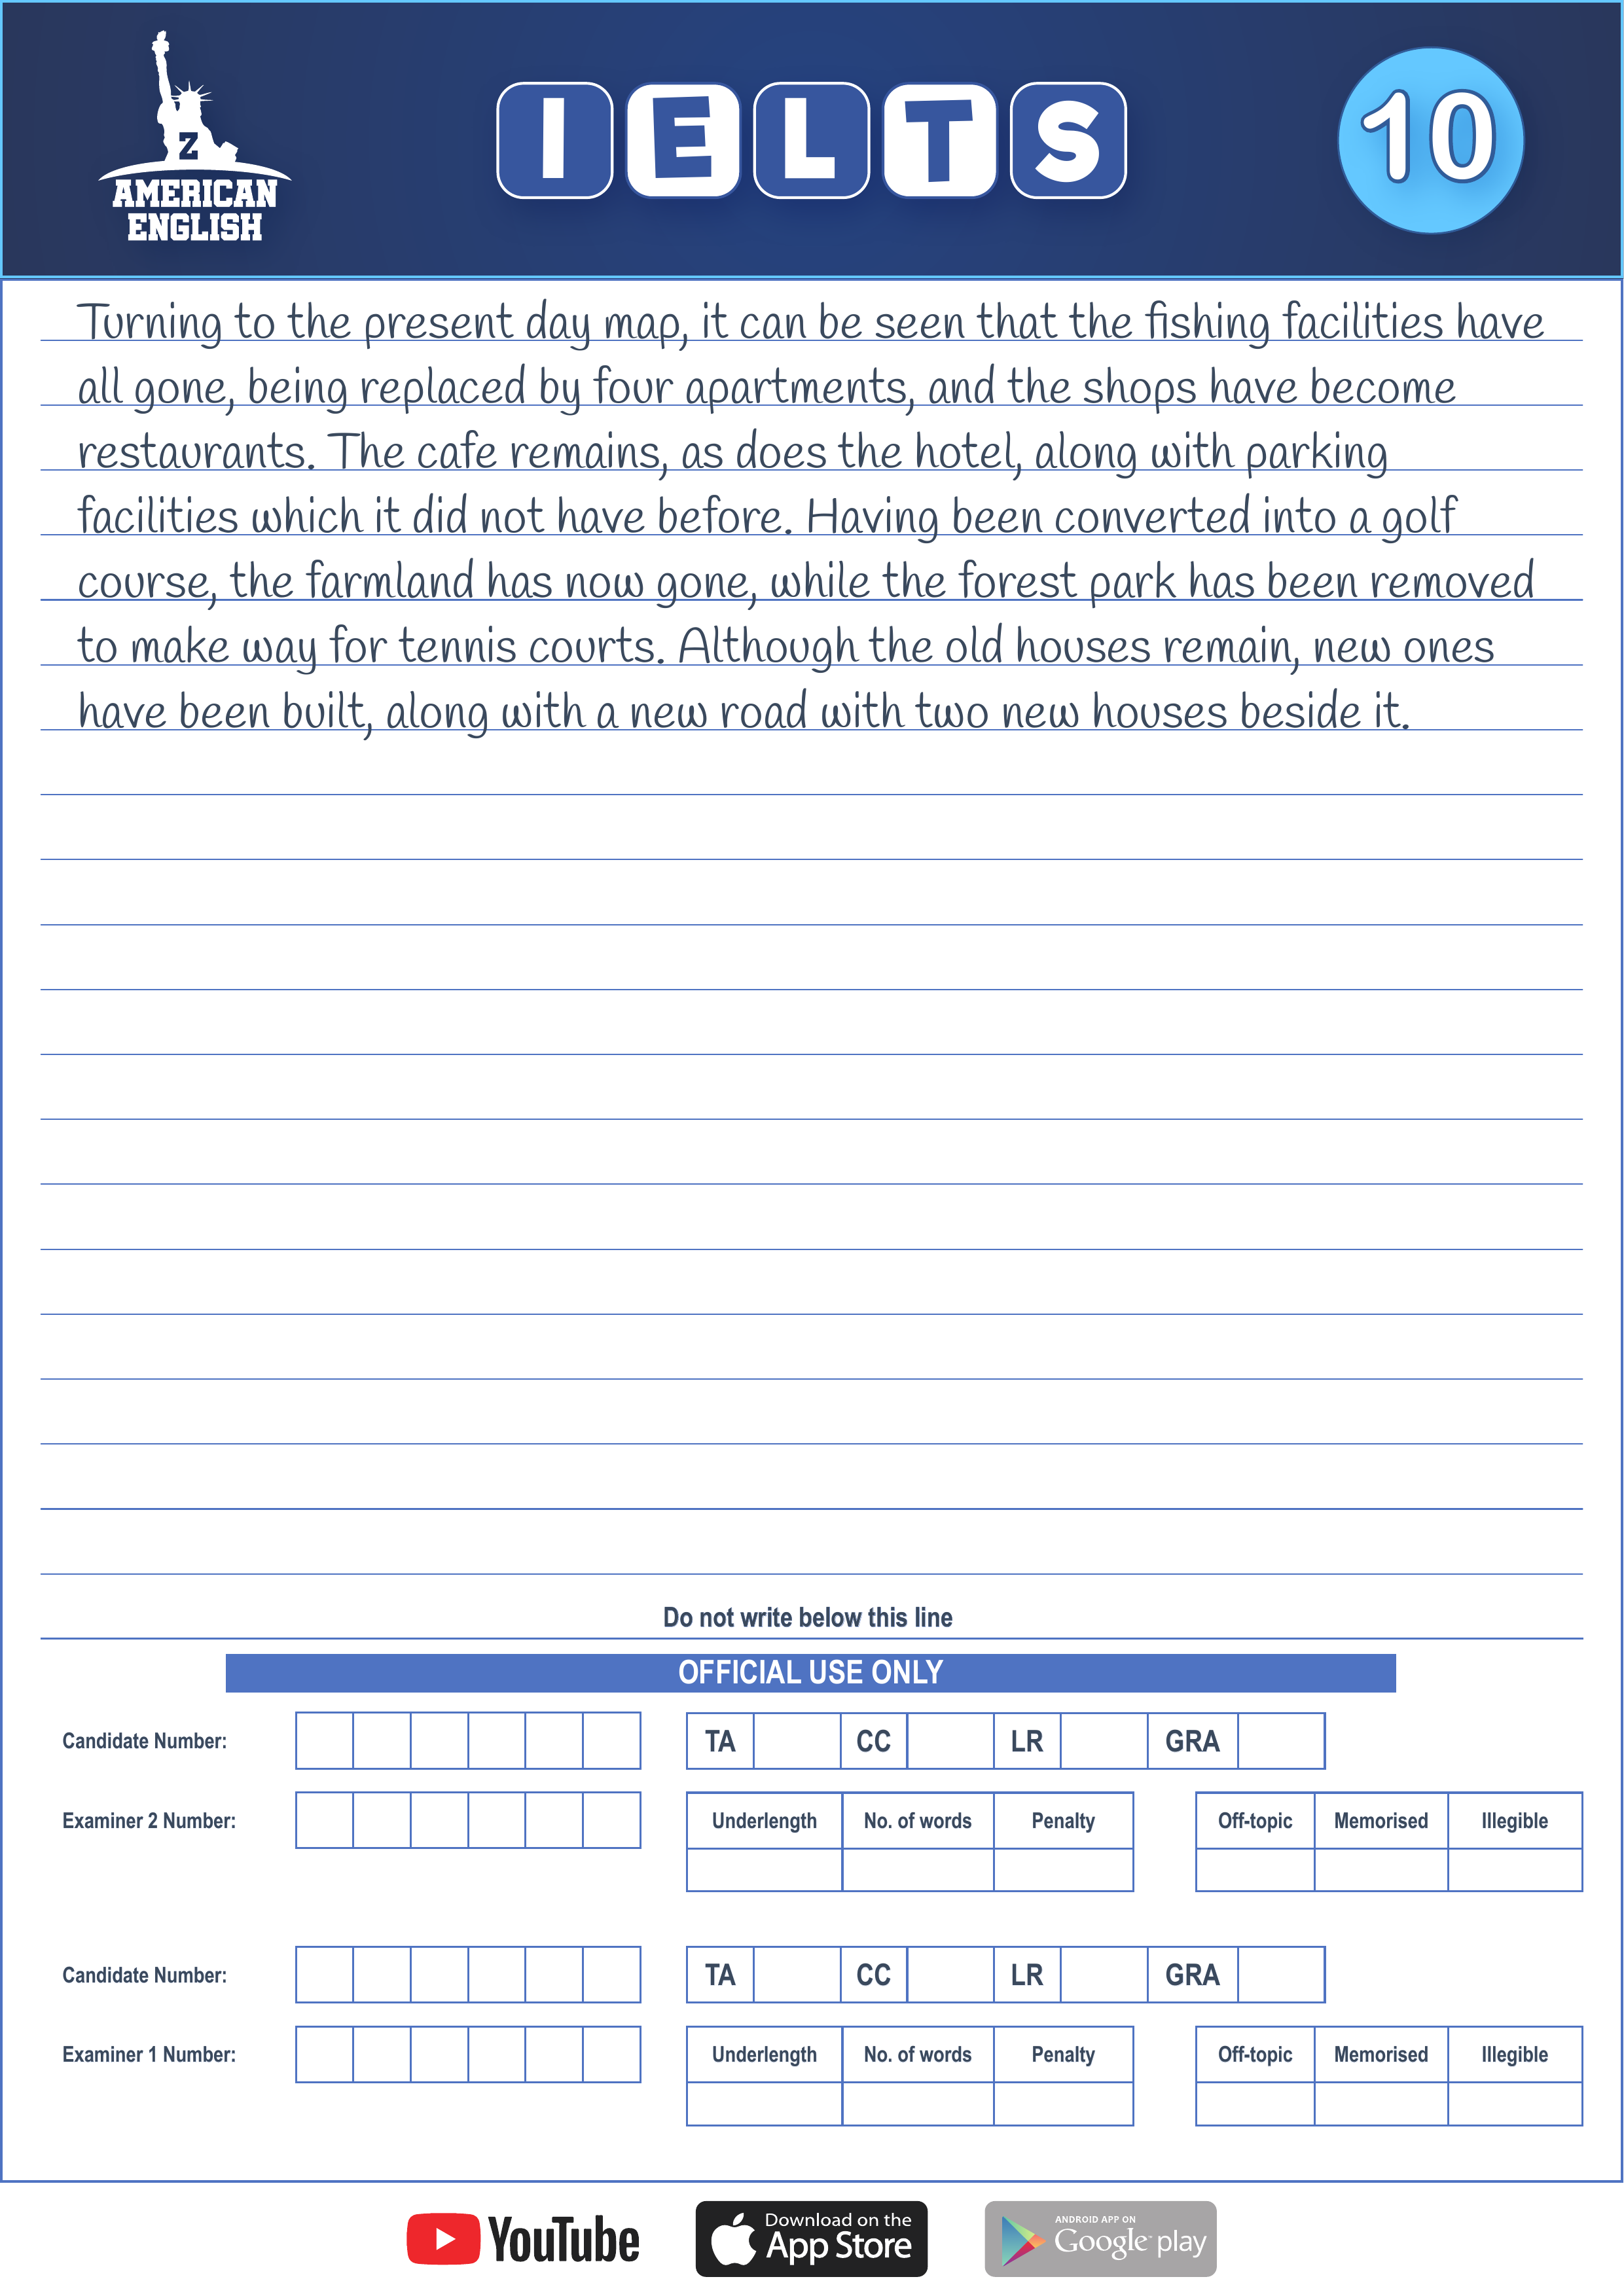 Z
AMERICAN
ENGLISH
IELTS
10
Turning to the present day map, it can be seen that the fishing facilities have
all gone, being replaced by four apartments, and the shops have become
restaurants. The cafe remains, as does the hotel, along with parking
facilities which it did not have before. Having been converted into a golf
course, the farmland has now gone, while the forest park has been removed
to make way for tennis courts. Although the old houses remain, new ones
have been built, along with a new road with two new houses beside it.
Do not write below this line
OFFICIAL USE ONLY
Candidate Number: TA CC LR GRA
Examiner 2 Number: Underlength No. of words Penalty Off-topic Memorised Illegible
Candidate Number: TA CC LR GRA
Examiner 1 Number: Underlength No. of words Penalty Off-topic Memorised Illegible
YouTube
Download on the
App Store
ANDROID APP ON
Google play